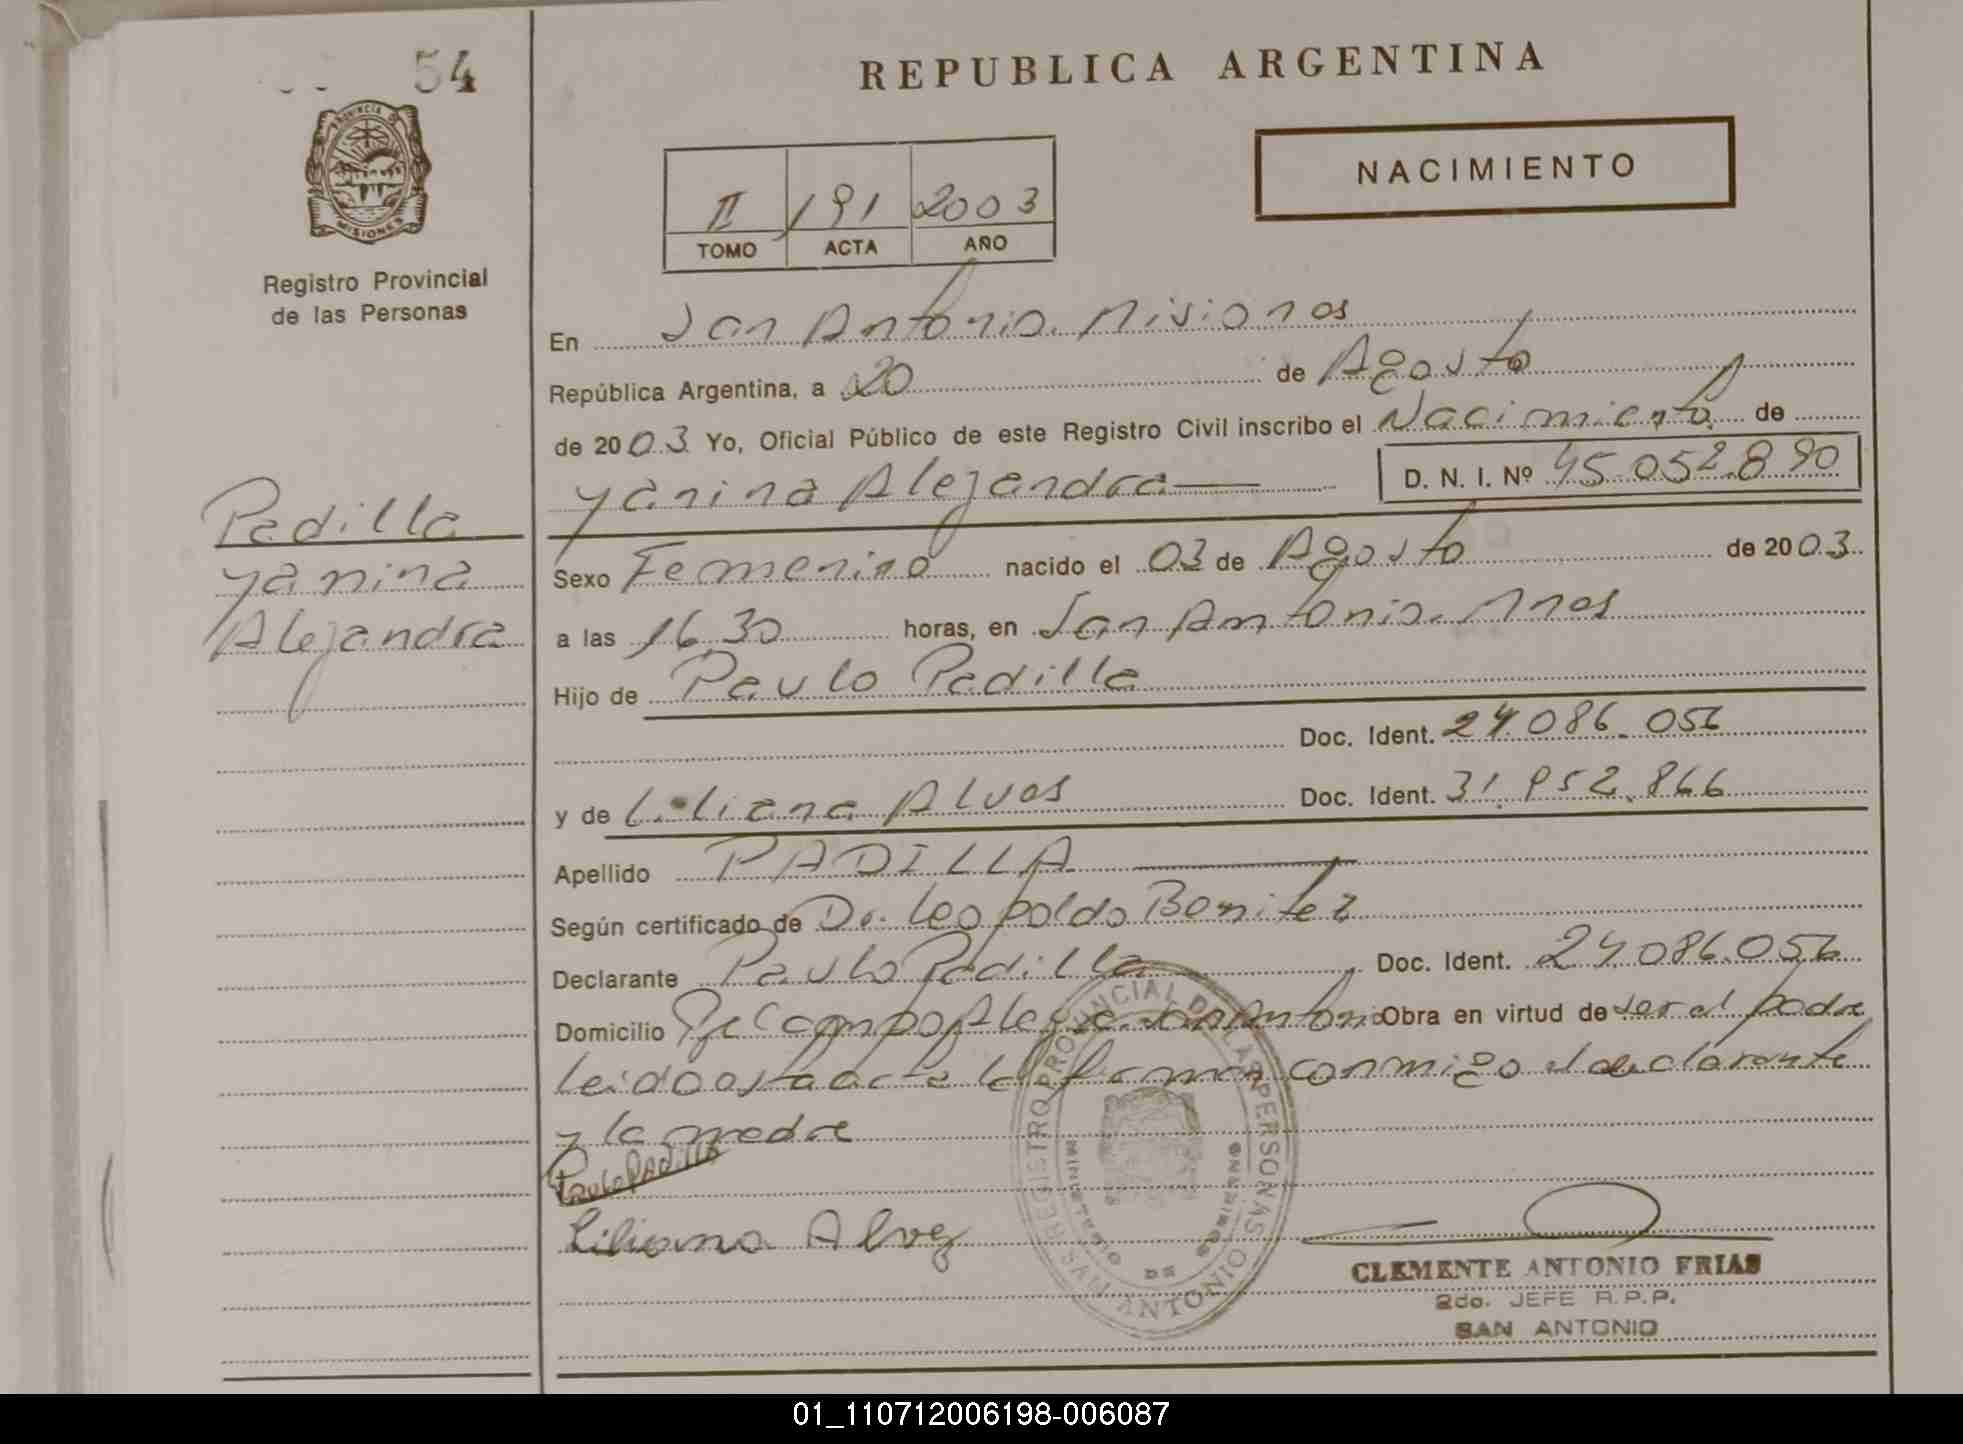 54
PROVINCIA DE
MISIONES
Registro Provincial
de las Personas
Padilla
Yanina
Alejandra
REPUBLICA ARGENTINA
NACIMIENTO
II 191 2003
TOMO ACTA AÑO
En San Antonio. Misiones
República Argentina, a 20 de Agosto
de 2003 Yo, Oficial Público de este Registro Civil inscribo el Nacimiento de
Yanina Alejandra D. N. I. Nº 45.052.890
Sexo Femenino nacido el 03 de Agosto de 2003
a las 16,30 horas, en San Antonio. Mnes
Hijo de Paulo Padilla
Doc. Ident. 24.086.056
y de Liliana Alves Doc. Ident. 31.952.866
Apellido PADILLA
Según certificado de Dr. Leopoldo Benitez
Declarante Paulo Padilla Doc. Ident. 24.086.056
Domicilio Pje Campo Alegre San Antonio Obra en virtud de ser el padre
leido esta acta la firman conmigo el declarante
y la madre
Paulo Padilla
Liliana Alvez
REGISTRO PROVINCIAL DE LAS PERSONAS
SAN ANTONIO
MINISTERIO DE GOBIERNO
CLEMENTE ANTONIO FRIAS
2do. JEFE R.P.P.
SAN ANTONIO
01_110712006198-006087